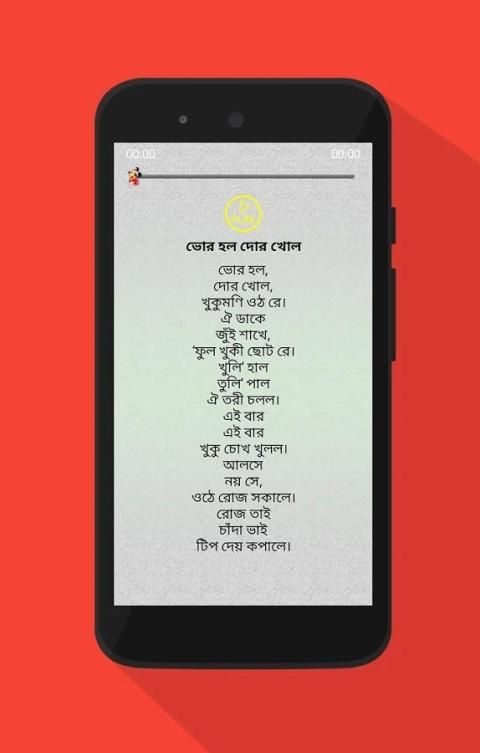 00:00 00:00
PLAY
ভোর হল দোর খোল
ভোর হল,
দোর খোল,
খুকুমণি ওঠ রে।
ঐ ডাকে
জুঁই শাখে,
‘ফুল খুকী ছোট রে।
খুলি’ হাল
তুলি’ পাল
ঐ তরী চলল।
এই বার
এই বার
খুকু চোখ খুলল।
আলসে
নয় সে,
ওঠে রোজ সকালে।
রোজ তাই
চাঁদা ভাই
টিপ দেয় কপালে।